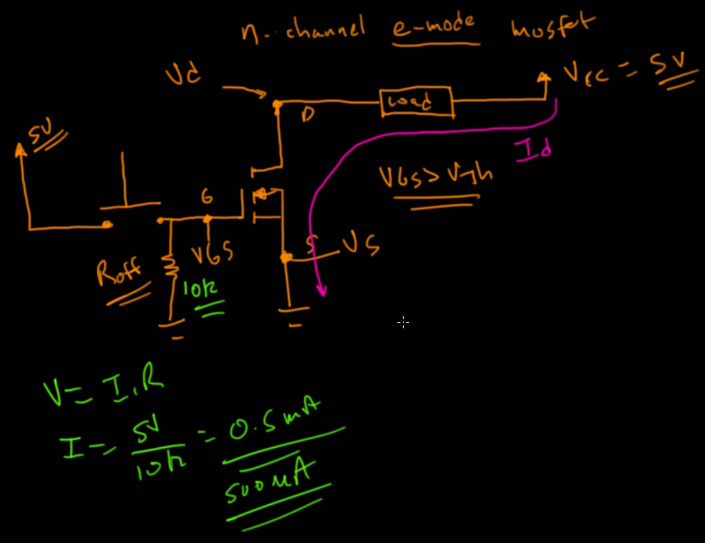 n-channel e-mode mosfet
Vd
Load
Vcc = 5V
D
5V
Id
VGS > VTh
G
VGS
S
VS
Roff
10k
V = I.R
I = 5V/10k = 0.5mA
500μA